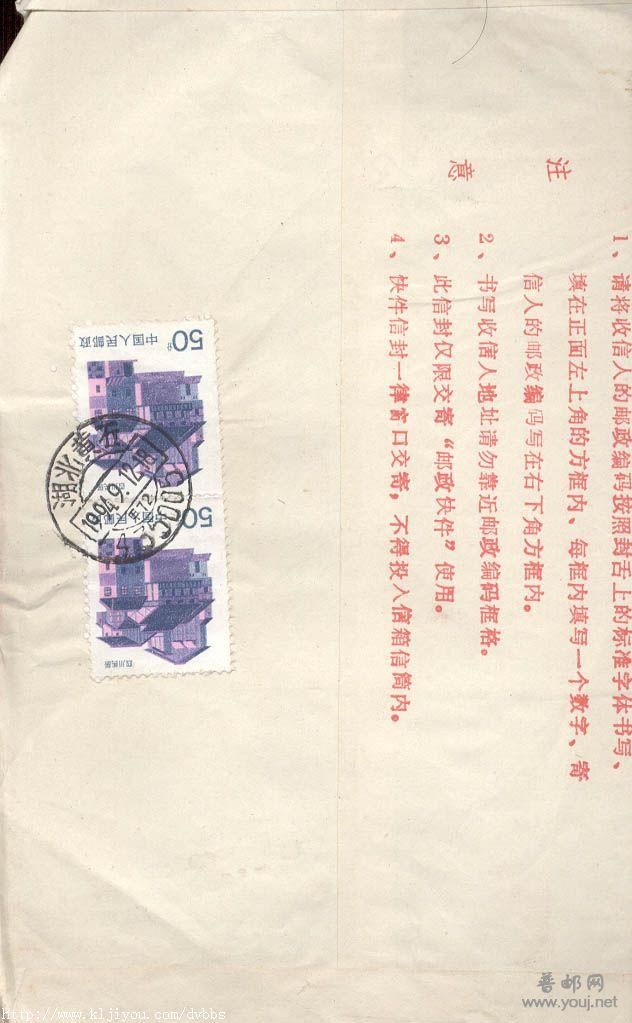 注意
1、请将收信人的邮政编码按照封舌上的标准字体书写、
填在正面左上角的方框内、每框内填写一个数字、寄
信人的邮政编码写在右下角方框内。
2、书写收信人地址请勿靠近邮政编码框格。
3、此信封仅限交寄“邮政快件”使用。
4、快件信封一律窗口交寄，不得投入信箱信筒内。
50分
中国人民邮政
50分
中国人民邮政
四川民居
湖北黄石
1994.9.12.18
普邮网
www.youj.net
http://www.kljiyou.com/dvbbs